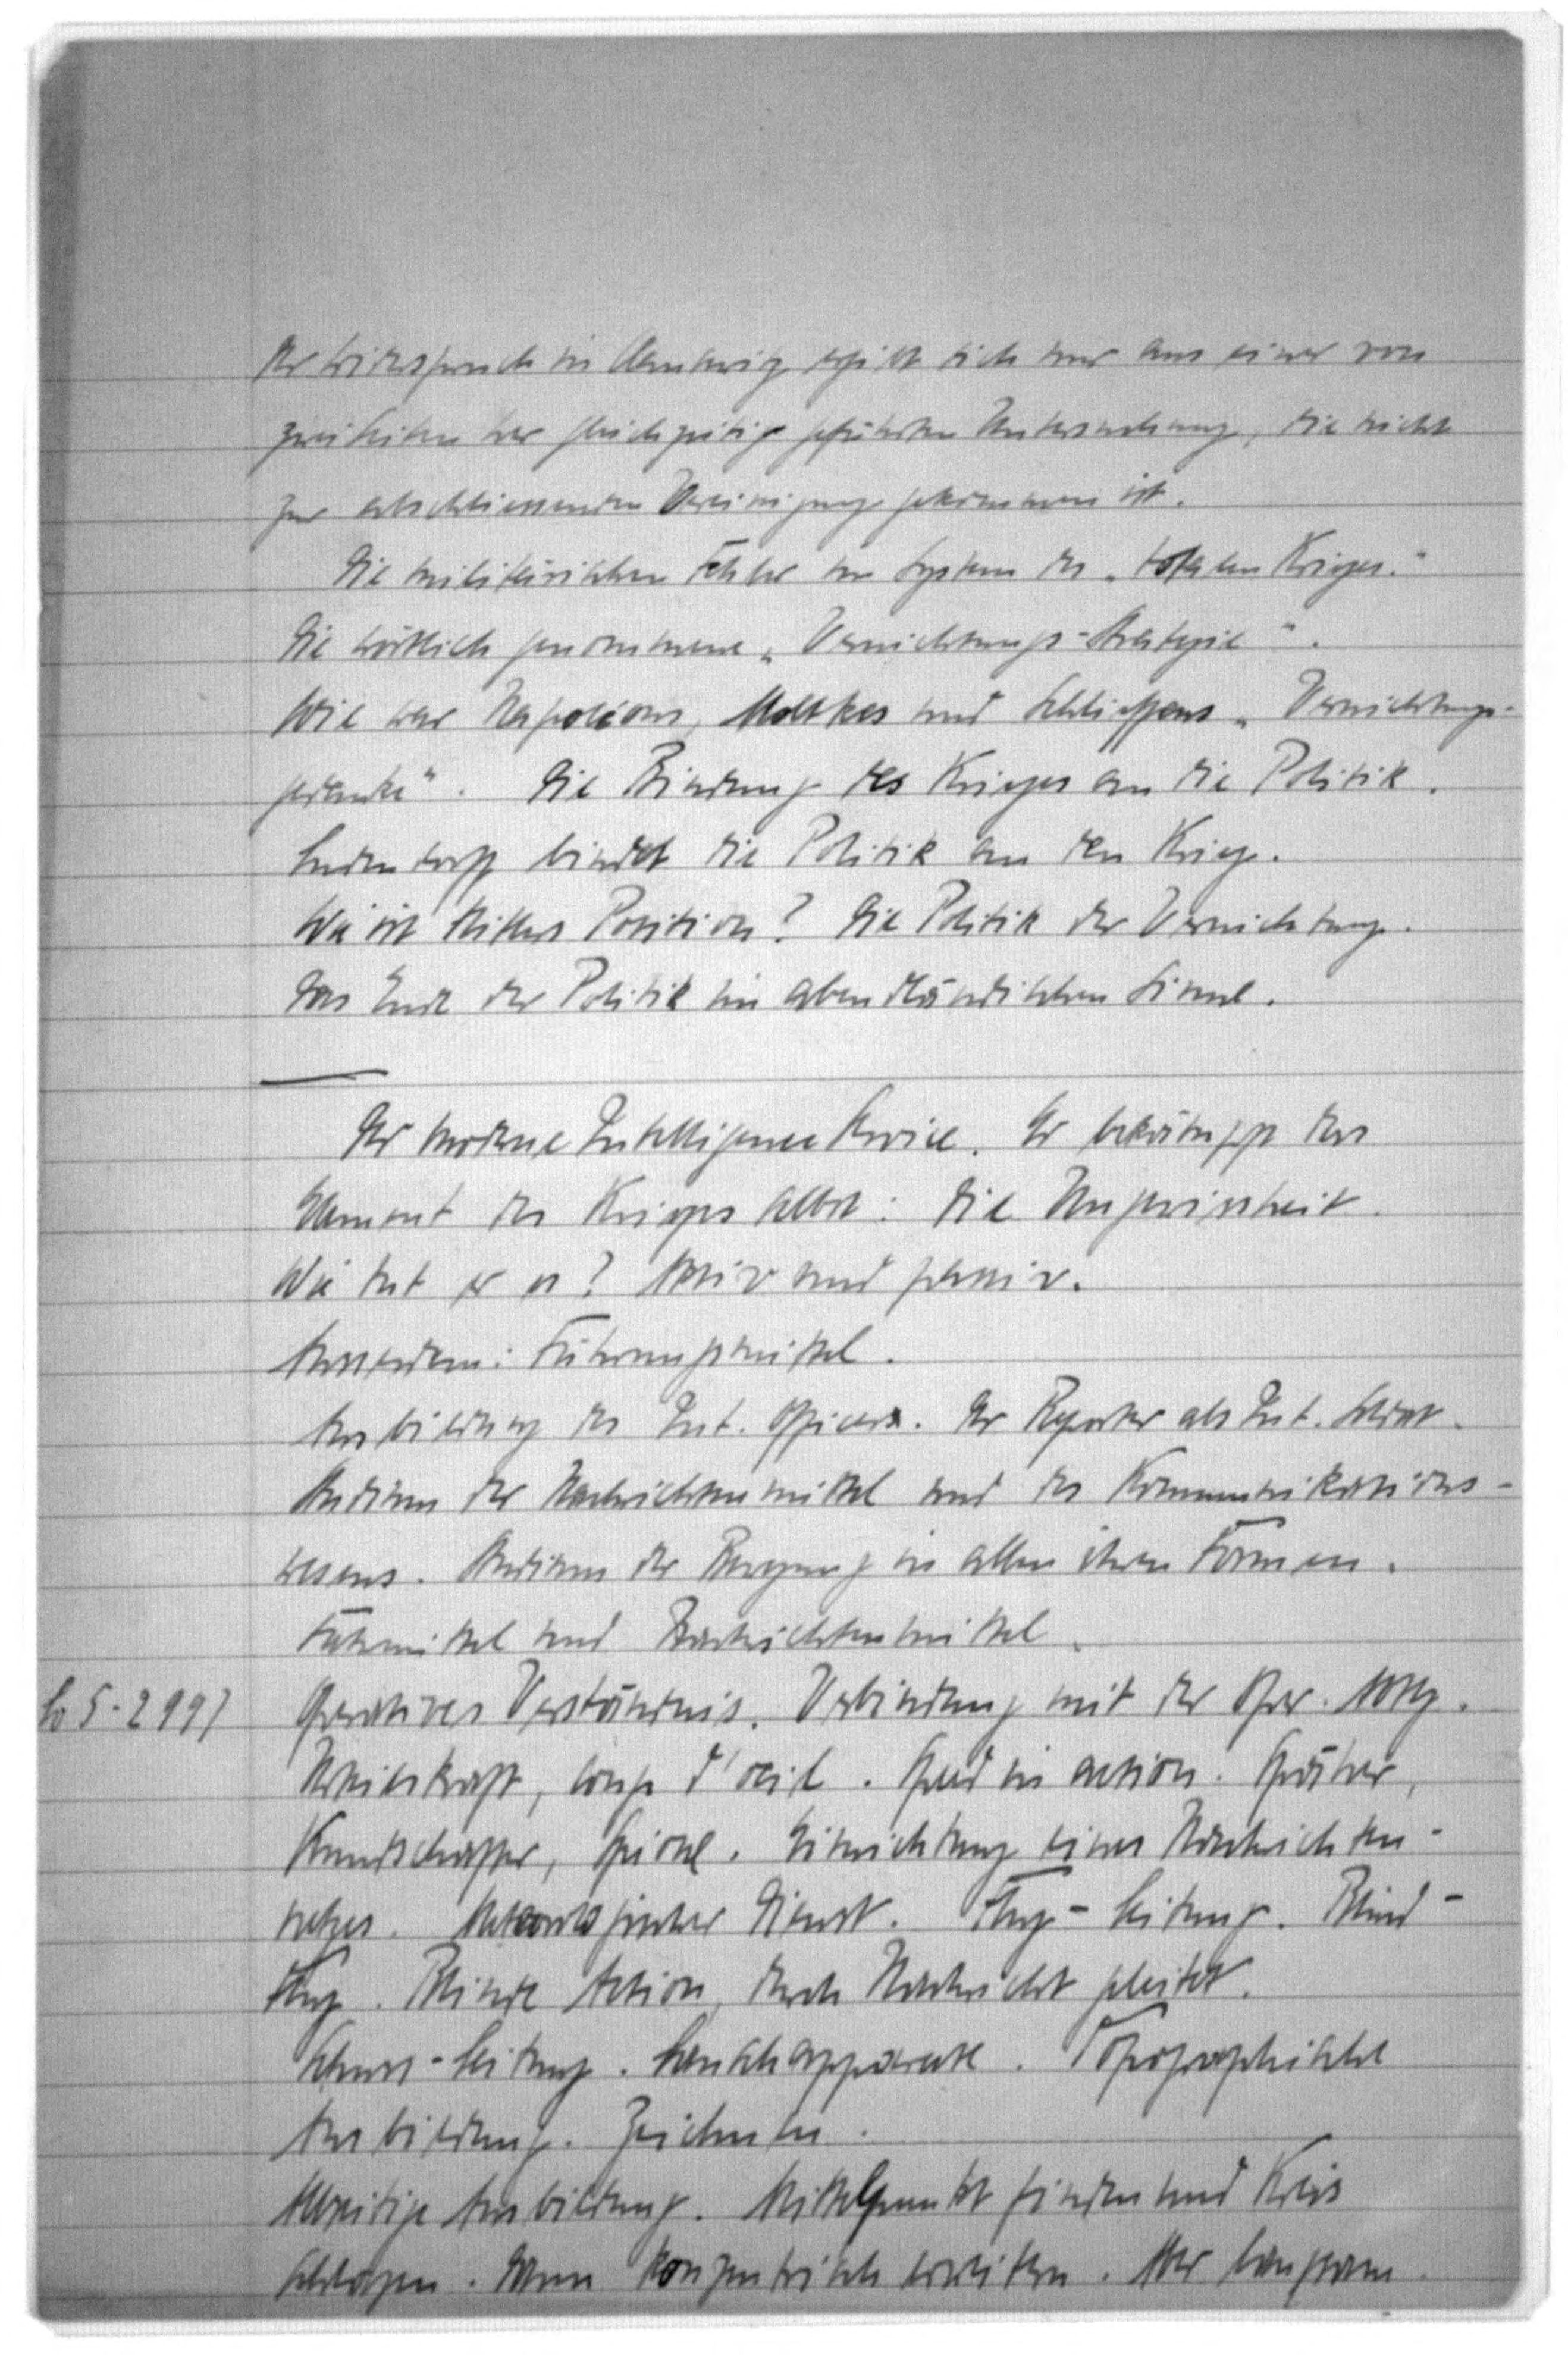 Der Widerspruch in Clausewitz ergibt sich nur aus einer von
zwei Seiten her gleichzeitig geführten Untersuchung, die nicht
zur abschliessenden Vereinigung gekommen ist.
Die militärischen Fehler im System des „totalen Krieges."
Die wörtlich genommene „Vernichtungs-Strategie".
Wie war Napoleons, Moltkes und Schlieffens „Vernichtungs-
gedanke". Die Bindung des Krieges an die Politik.
Ludendorff bindet die Politik an den Krieg.
Wie ist Hitlers Position? Die Politik der Vernichtung.
Das Ende der Politik im abendländischen Sinne.
Der moderne Intelligence Service. Er bekämpft das
Element des Krieges selbst: die Ungewissheit.
Wie tut er es? Aktiv und passiv.
Ausserdem: Führungsmittel.
Ausbildung des Int. Officers. Der Reporter als Int. Soldat.
Studium der Nachrichtenmittel und des Kommunikations-
wesens. Studium der Bewegung in allen ihren Formen.
Fahrmittel und Nachrichtenmittel.
So 5-2991 Operatives Verständnis. Verbindung mit der Oper. Abtlg.
Urteilskraft, coup d'oeil. Speed in action. Späher,
Kundschafter, Spione. Einrichtung eines Nachrichten-
netzes. Meteorologischer Dienst. Flug-Leitung. Blind-
flug. Blinde Action, durch Nachricht geleitet.
Schuss-Leitung. Lauschapparate. Topographische
Ausbildung. Zeichnen.
Allseitige Ausbildung. Mittelpunkt finden und Kreis
schlagen. Dann konzentrisch arbeiten. Aber langsam.